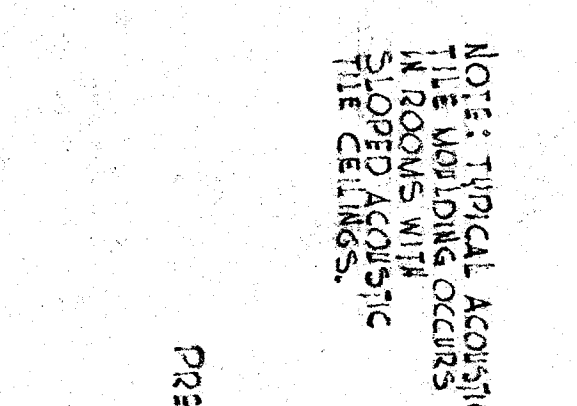 NOTE: TYPICAL ACOUSTIC
TILE MOULDING OCCURS
IN ROOMS WITH
SLOPED ACOUSTIC
TILE CEILINGS.
PRE